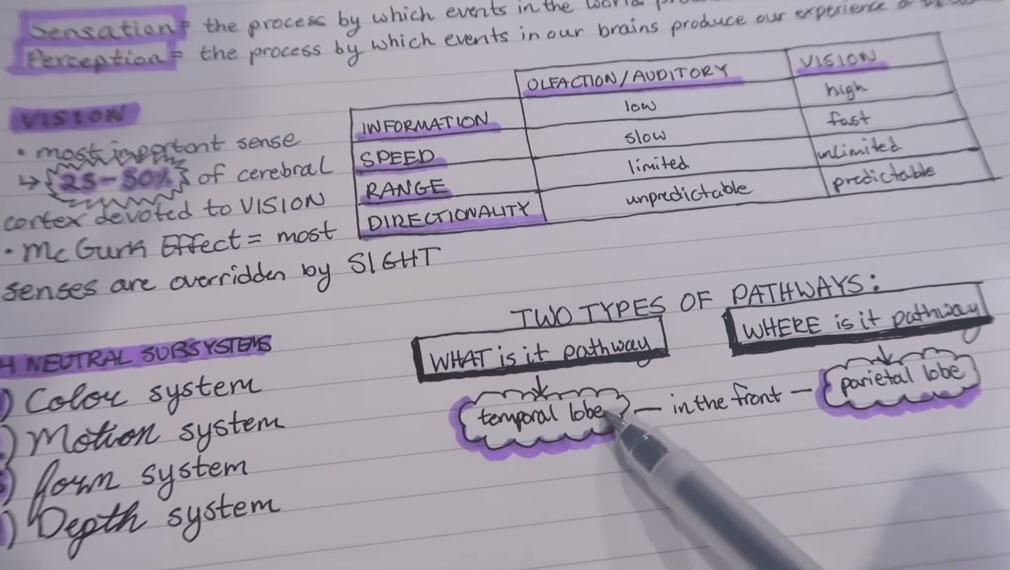 Sensation = the process by which events in the
Perception = the process by which events in our brains produce our experience
VISION
• most important sense
↳ {25-50%} of cerebral
cortex devoted to VISION
• McGurk Effect = most
senses are overridden by SIGHT
OLFACTION/AUDITORY VISION
INFORMATION low high
SPEED slow fast
RANGE limited unlimited
DIRECTIONALITY unpredictable predictable
4 NEUTRAL SUBSYSTEMS
) Color system
) Motion system
) form system
) Depth system
TWO TYPES OF PATHWAYS:
WHAT is it pathway WHERE is it pathway
temporal lobe — in the front — parietal lobe